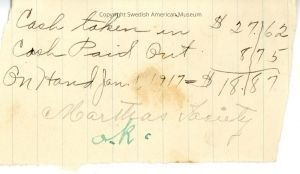 Copyright Swedish American Museum
Cash taken in $27,62
Cash Paid Out. 8 75
On Hand Jan. 1 1917 = $18,87
Marthas Society
o.k.